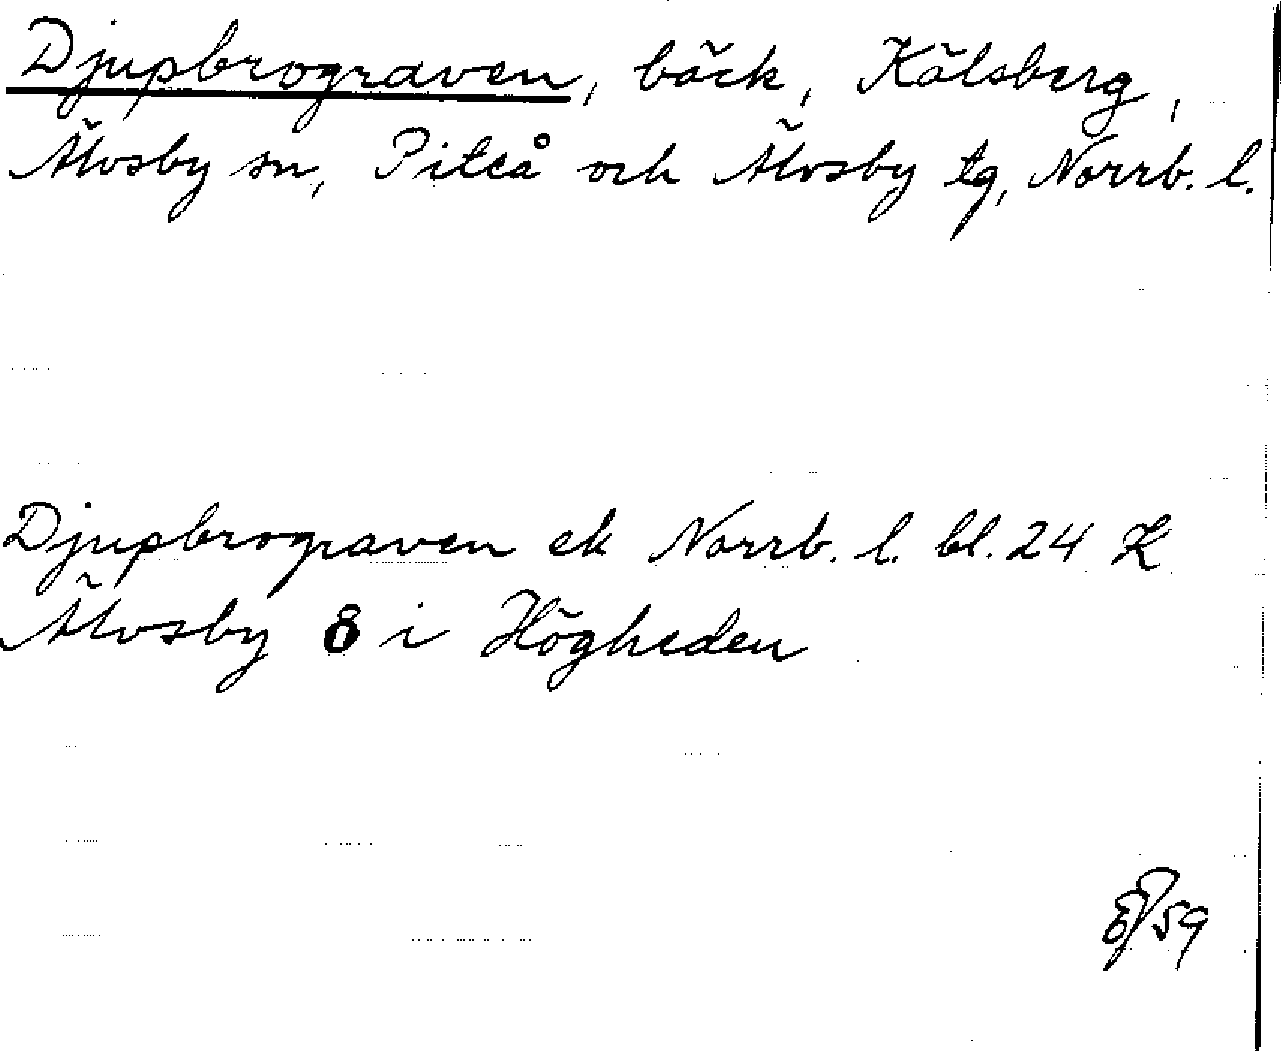 Djupbrograven, bäck, Kälsberg,
Älvsby sn, Piteå och Älvsby tg, Norrb. l.
Djupbrograven ek Norrb. l. bl. 24 K
Älvsby 8 i Högheden